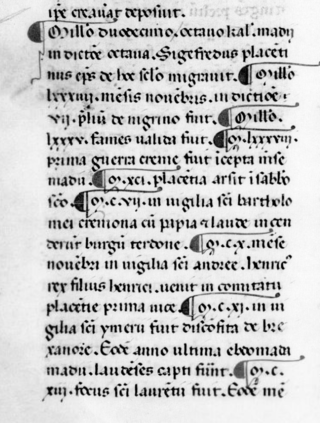 ipe creavat deposuit.
Millo duodecimo. octavo kal. madii
in dictoe octava. Sigefredus placeti
nus eps de hoc sclo migravit. Millo
lxxxiiij. mēsis novēbris. in dictioe
vii. pliū de nigrino fuit. Millo.
lxxxv. fames valida fuit. M. lxxxviij.
prima guerra creme fuit īcepta mēse
madii. M. xci. placētia arsit ī sabbo
scō. M. C. vij. in vigilia sci bartholo
mei cremona cū papia ⁊ laude incen
derūt burgū terdone. M. C. X. mēse
novēbri in vigilia sci andree. henric⁹
rex filius henrici. venit in comitatu
placētie prima vice. M. C. XI. in vi
gilia sci ymerii fuit discōfita de bre
xanore. Eodē anno ultima ebdomadi
madii. laudēses capti fūrt. M. C.
xvi. focus sci laurētii fuit. Eodē mē